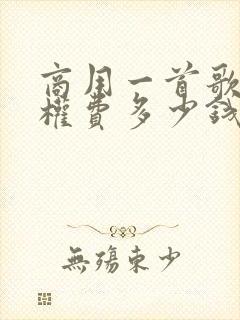 商用一首歌
權費多少錢
無殤東少